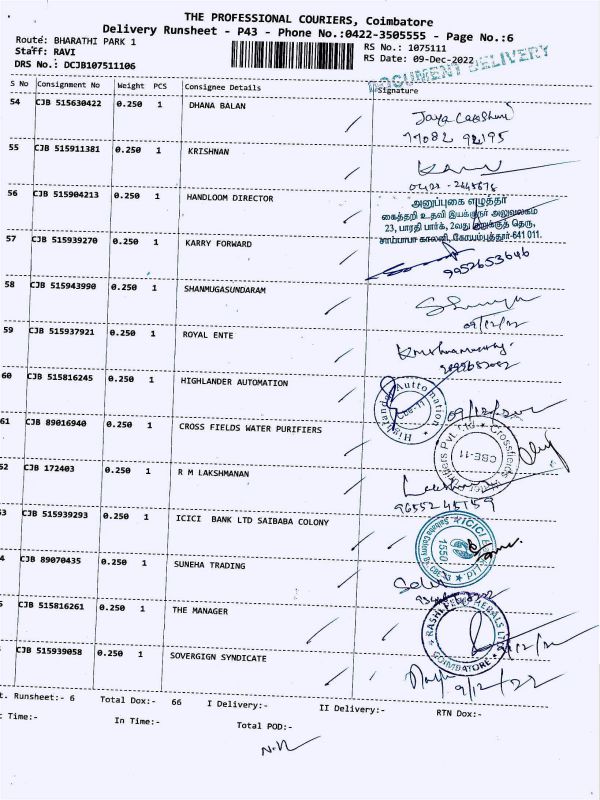 THE PROFESSIONAL COURIERS, Coimbatore
Delivery Runsheet - P43 - Phone No.:0422-3505555 - Page No.:6
Route: BHARATHI PARK 1
RS No.: 1075111
Staff: RAVI
RS Date: 09-Dec-2022
DRS No.: DCJB107511106
DOCUMENT DELIVERY
S No Consignment No Weight PCS Consignee Details Signature
54 CJB 515630422 0.250 1 DHANA BALAN
77082 92195
55 CJB 515911381 0.250 1 KRISHNAN
56 CJB 515904213 0.250 1 HANDLOOM DIRECTOR
அனுப்புகை எழுத்தர்
கைத்தறி உதவி இயக்குநர் அலுவலகம்
23, பாரதி பார்க், 2வது குறுக்குத் தெரு,
சாய்பாபா காலனி, கோயம்புத்தூர்-641 011.
57 CJB 515939270 0.250 1 KARRY FORWARD
9952653646
58 CJB 515943990 0.250 1 SHANMUGASUNDARAM
09/12/22
59 CJB 515937921 0.250 1 ROYAL ENTE
60 CJB 515816245 0.250 1 HIGHLANDER AUTOMATION
Highlander Automation
CBE-11
61 CJB 89016940 0.250 1 CROSS FIELDS WATER PURIFIERS
Crossfields Water Purifiers Pvt. Ltd
CBE-11
62 CJB 172403 0.250 1 R M LAKSHMANAN
9655245159
3 CJB 515939293 0.250 1 ICICI BANK LTD SAIBABA COLONY
1550
4 CJB 89070435 0.250 1 SUNEHA TRADING
5 CJB 515816261 0.250 1 THE MANAGER
COIMBATORE
CJB 515939058 0.250 1 SOVERGIGN SYNDICATE
9/12/22
t. Runsheet:- 6 Total Dox:- 66 I Delivery:- II Delivery:- RTN Dox:-
Time:- In Time:- Total POD:-